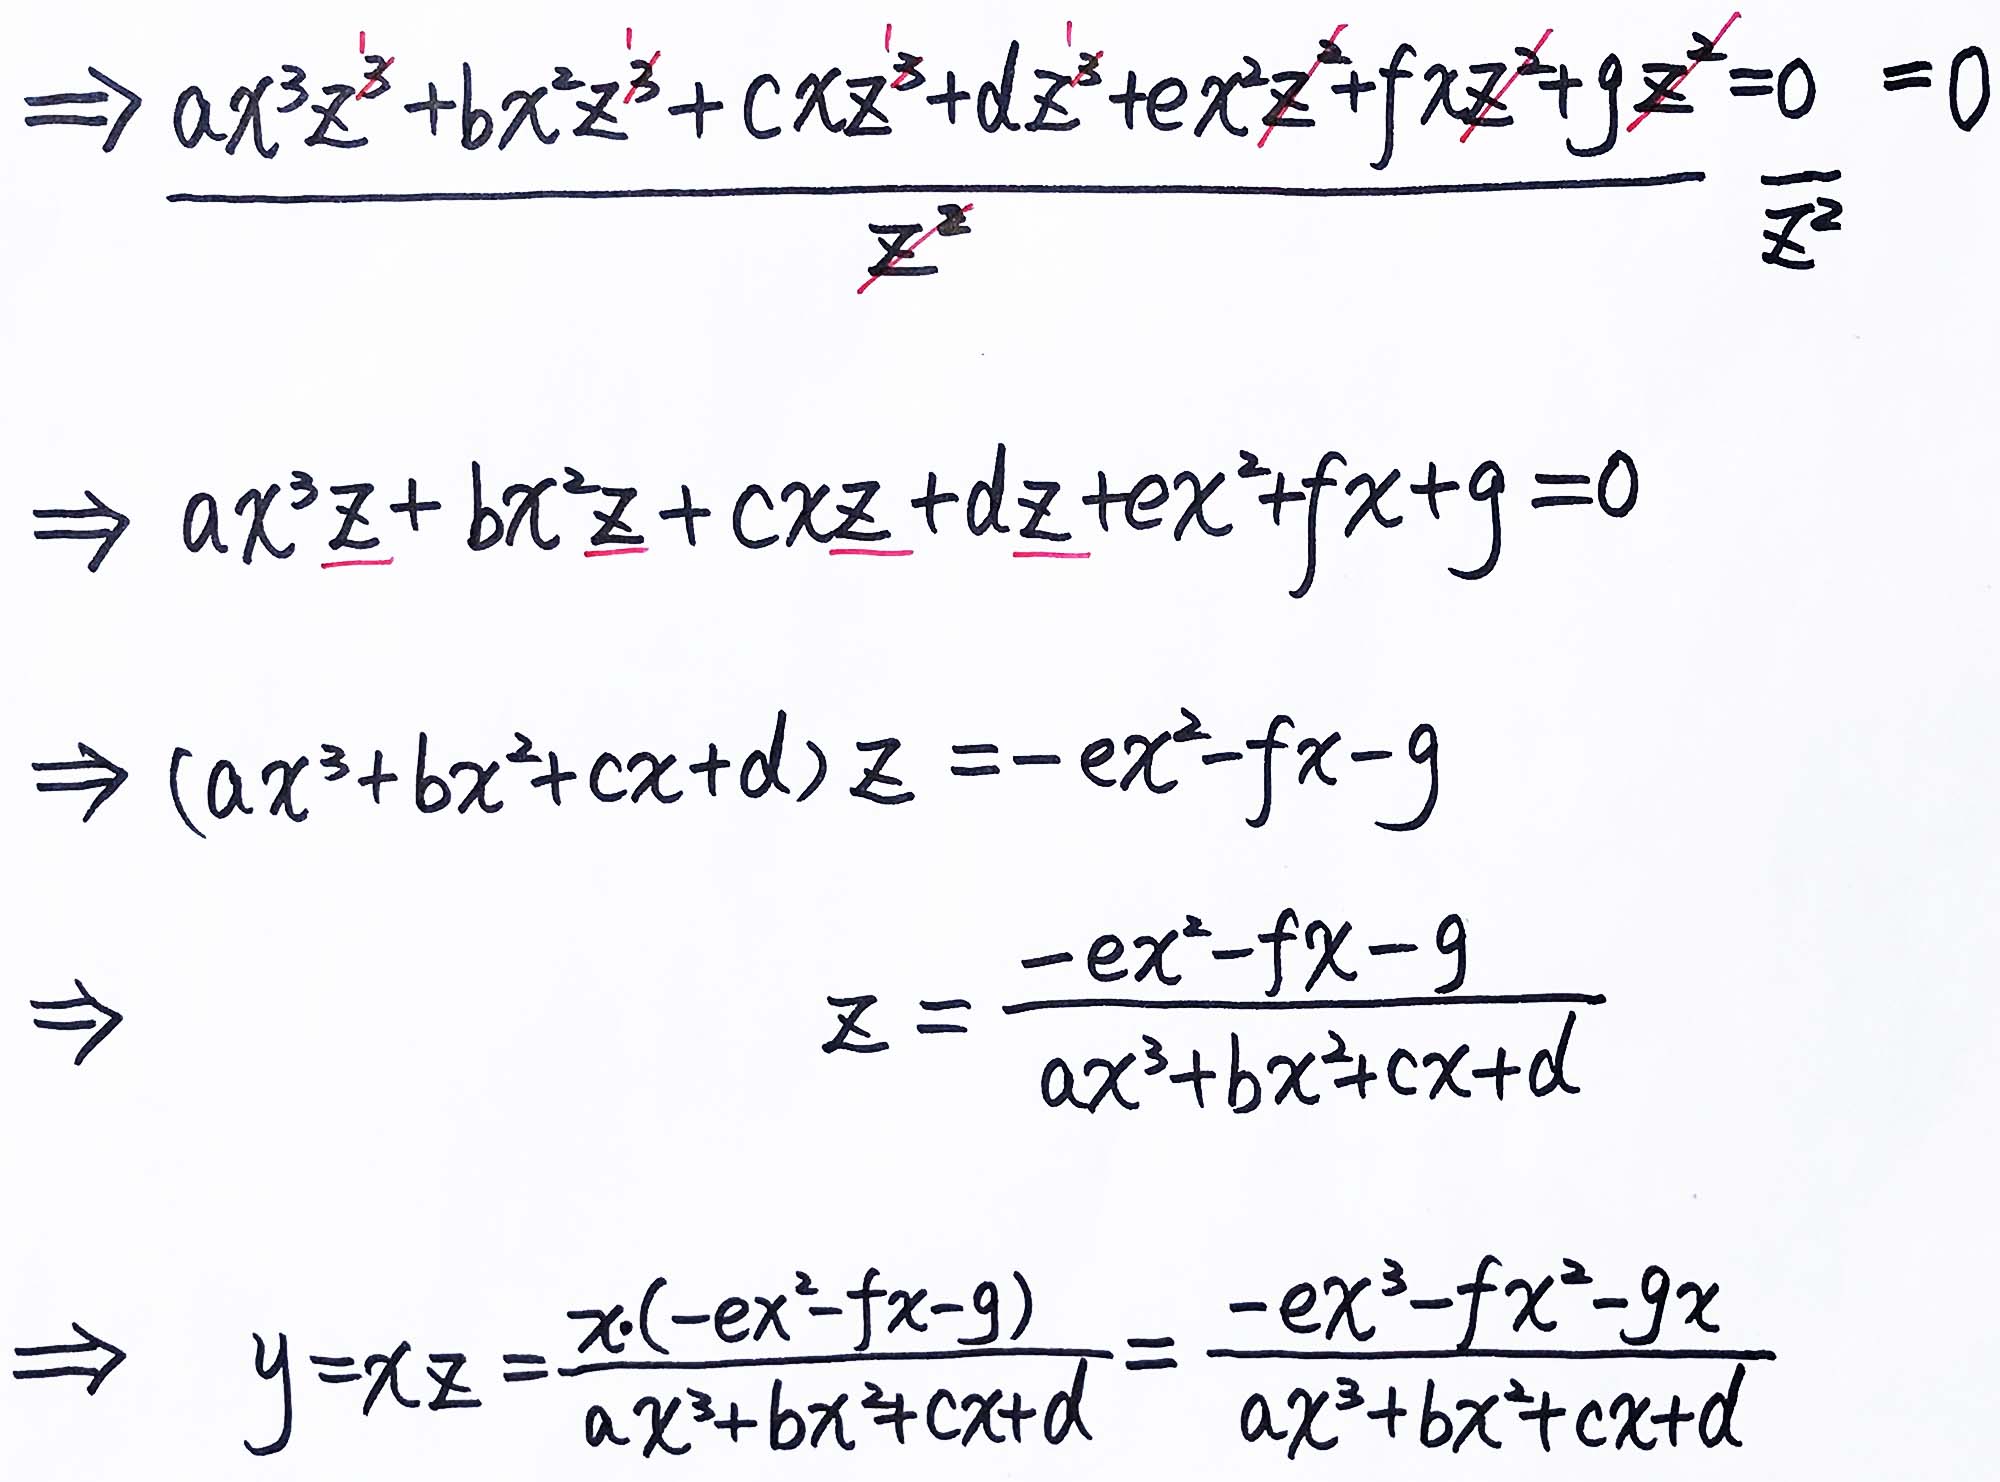 ⇒ ax³z³ + bx²z³ + cxz³ + dz³ + ex²z² + fxz² + gz² = 0 = 0
z² z²
⇒ ax³z + bx²z + cxz + dz + ex² + fx + g = 0
⇒ (ax³ + bx² + cx + d) z = -ex² - fx - g
⇒ z = (-ex² - fx - g) / (ax³ + bx² + cx + d)
⇒ y = xz = x·(-ex² - fx - g) / (ax³ + bx² + cx + d) = (-ex³ - fx² - gx) / (ax³ + bx² + cx + d)